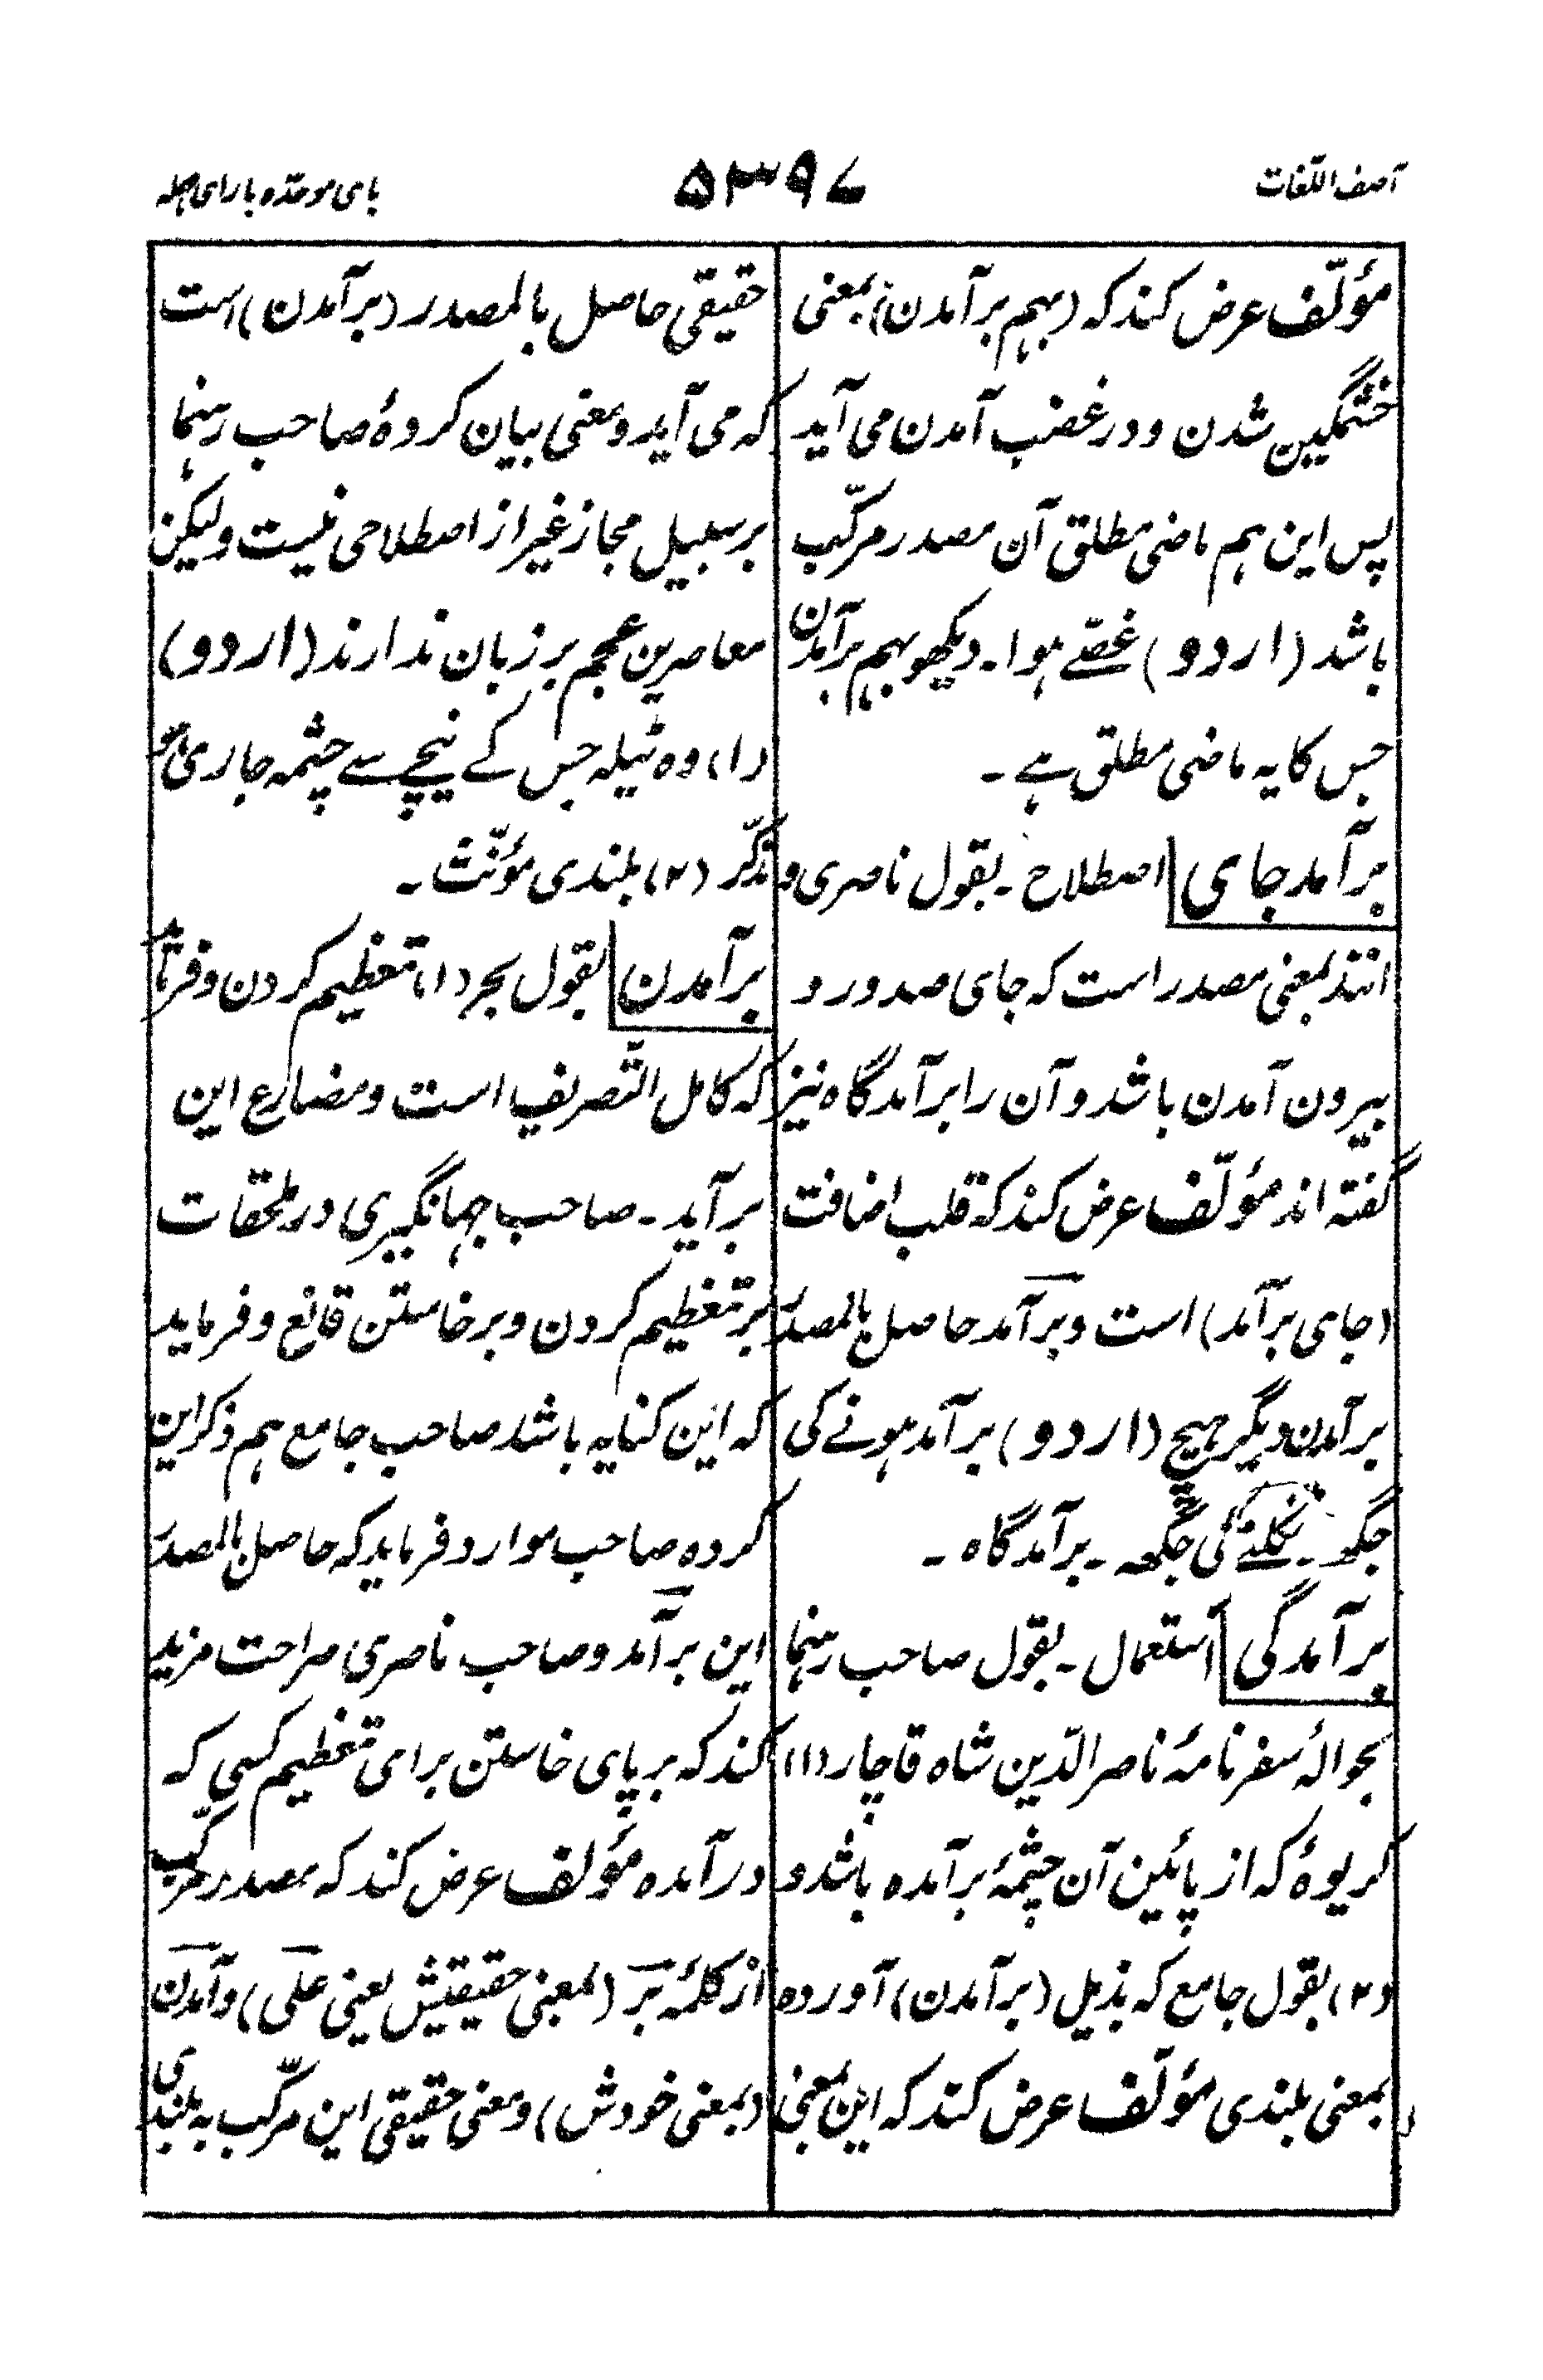 آصف اللّغات
۵۳۹۷
بای موحّده با رای مهمله
مؤلّف عرض کند که (بہم برآمدن) بمعنی
خشمگین شدن و در غضب آمدن می آید
پس این ہم ماضی مطلق آن مصدر مرکّب
باشد (اردو) غصّے ہوا ـ دیکھو بہم برآمدن
جس کا یہ ماضی مطلق ہے ـ
برآمد جای اصطلاح ـ بقول ناصری و
انند بمعنی مصدر است که جای صدور و
بیرون آمدن باشد و آن را برآمد گاه نیز
گفته اند مؤلّف عرض کند که قلب اضافت
(جای برآمد) است و برآمد حاصل بالمصدر
برآمدن دیگر ہیچ (اردو) برآمد ہونے کی
جگہ ـ نکلنے کی جگہ ـ برآمدگاه ـ
برآمدگی استعمال ـ بقول صاحب رہنما
بحوالۂ سفرنامۂ ناصر الدّین شاه قاچار (۱)
کریوۂ که از پائین آن چشمۂ برآمده باشد و
(۲) بقول جامع که بذیل (برآمدن) آورده
بمعنی بلندی مؤلّف عرض کند که این بمعنی
حقیقی حاصل بالمصدر (برآمدن) است
که می آید و معنی بیان کردۂ صاحب رہنما
بر سبیل مجاز غیر از اصطلاحی نیست ولیکن
معاصرین عجم بر زبان ندارند (اردو)
(۱) وہ ٹیلہ جس کے نیچے سے چشمہ جاری ہو
مذکّر (۲) بلندی مؤنّث ـ
برآمدن بقول بحر (۱) تعظیم کردن و فرماید
که کامل التّصریف است و مضارع این
برآید ـ صاحب جہانگیری در ملحقات
بر تعظیم کردن و برخاستن قانع و فرماید
که این کنایه باشد صاحب جامع ہم ذکر این
کرده صاحب موارد فرماید که حاصل بالمصدر
این برآمد و صاحب ناصری صراحت مزید
کند که بر پای خاستن برای تعظیم کسی که
درآمده مؤلف عرض کند که مصدر مرکّب
از کلمۂ بر (بمعنی حقیقیش یعنی علی) و آمدن
(بمعنی خودش) و معنی حقیقی این مرکّب به بلندی